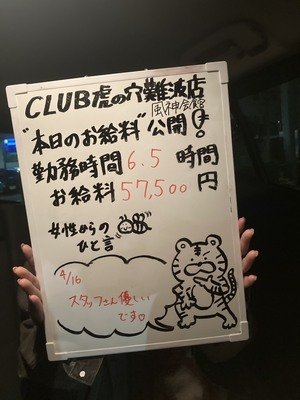 CLUB虎の穴難波店
風神会館
"本日のお給料"公開!
勤務時間6.5時間
お給料57,500円
女性からの
ひと言
4/16
スタッフさん優しい
です♡